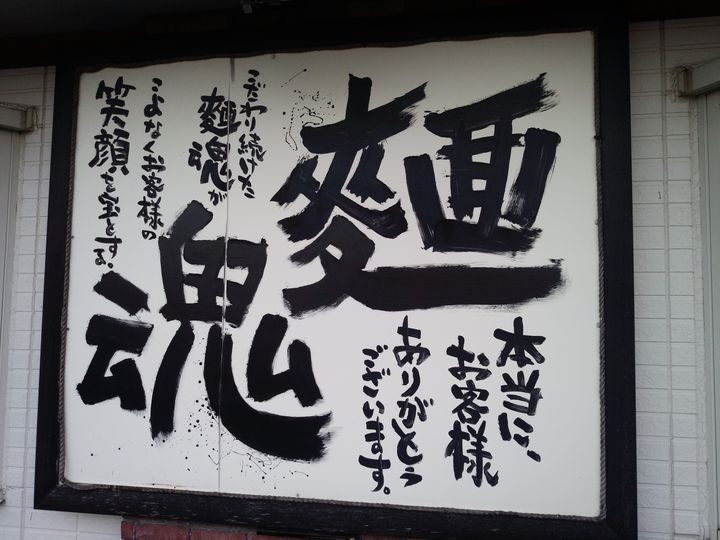 麺魂
こだわり続けた
麺魂が
こよなくお客様の
笑顔を宝とする。
本当に、
お客様
ありがとう
ございます。